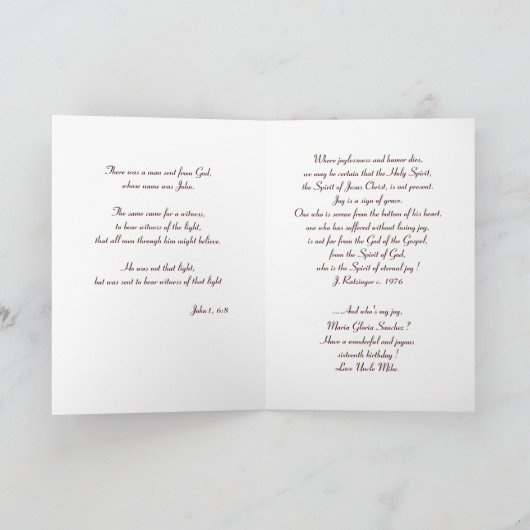 There was a man sent from God,
whose name was John.
The same came for a witness,
to bear witness of the light,
that all men through him might believe.
He was not that light,
but was sent to bear witness of that light
John 1, 6:8
Where joylessness and humor dies,
we may be certain that the Holy Spirit,
the Spirit of Jesus Christ, is not present.
Joy is a sign of grace.
One who is serene from the bottom of his heart,
one who has suffered without losing joy,
is not far from the God of the Gospel,
from the Spirit of God,
who is the Spirit of eternal joy !
J. Ratzinger c. 1976
....And who's my joy,
Maria Gloria Sanchez ?
Have a wonderful and joyous
sixteenth birthday !
Love Uncle Mike.